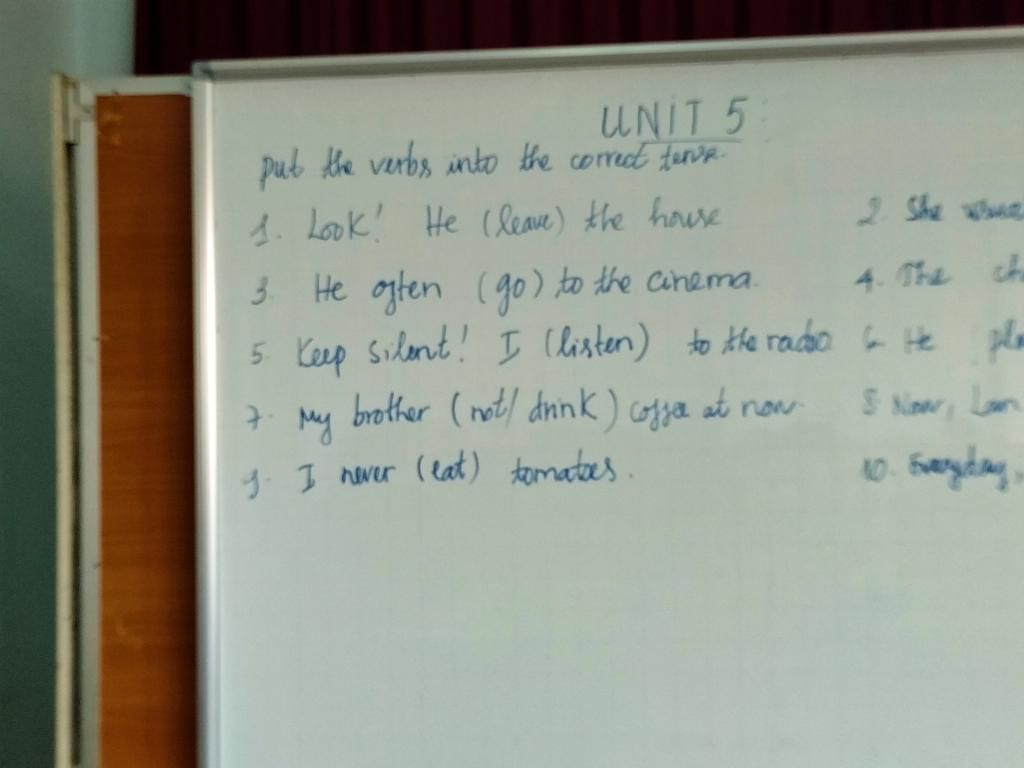 UNIT 5:
Put the verbs into the correct tense.
1. Look! He (leave) the house 2. She
3. He often (go) to the cinema. 4. The
5. Keep silent! I (listen) to the radio 6. He
7. My brother (not/drink) coffee at now. 8. Now,
9. I never (eat) tomatoes. 10. Everyday,